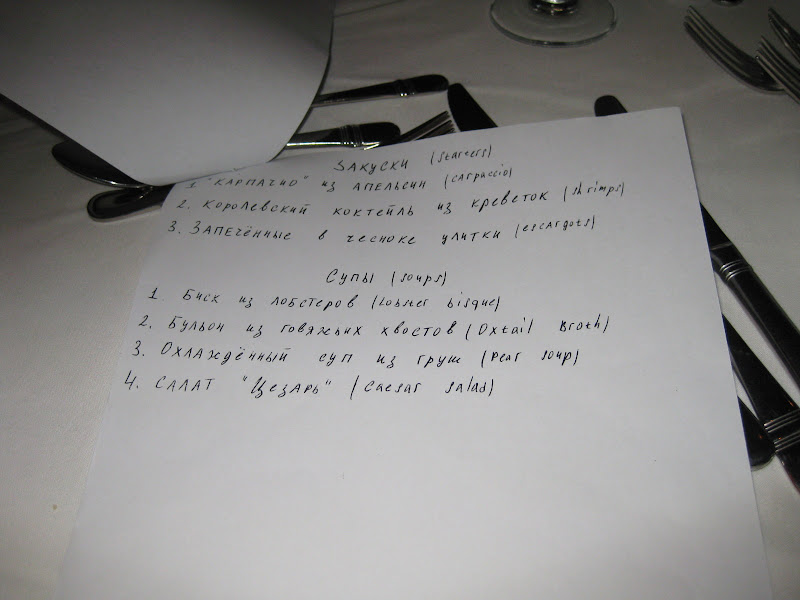 Закуски (starters)
1. "Карпачио" из апельсин (carpaccio)
2. Королевский коктейль из креветок (shrimps)
3. Запечённые в чесноке улитки (escargots)
Супы (soups)
1 Биск из лобстеров (Lobster bisque)
2. Бульон из говяжьих хвостов (Oxtail Broth)
3. Охлаждённый суп из груш (Pear soup)
4. Салат "Цезарь" (Caesar salad)